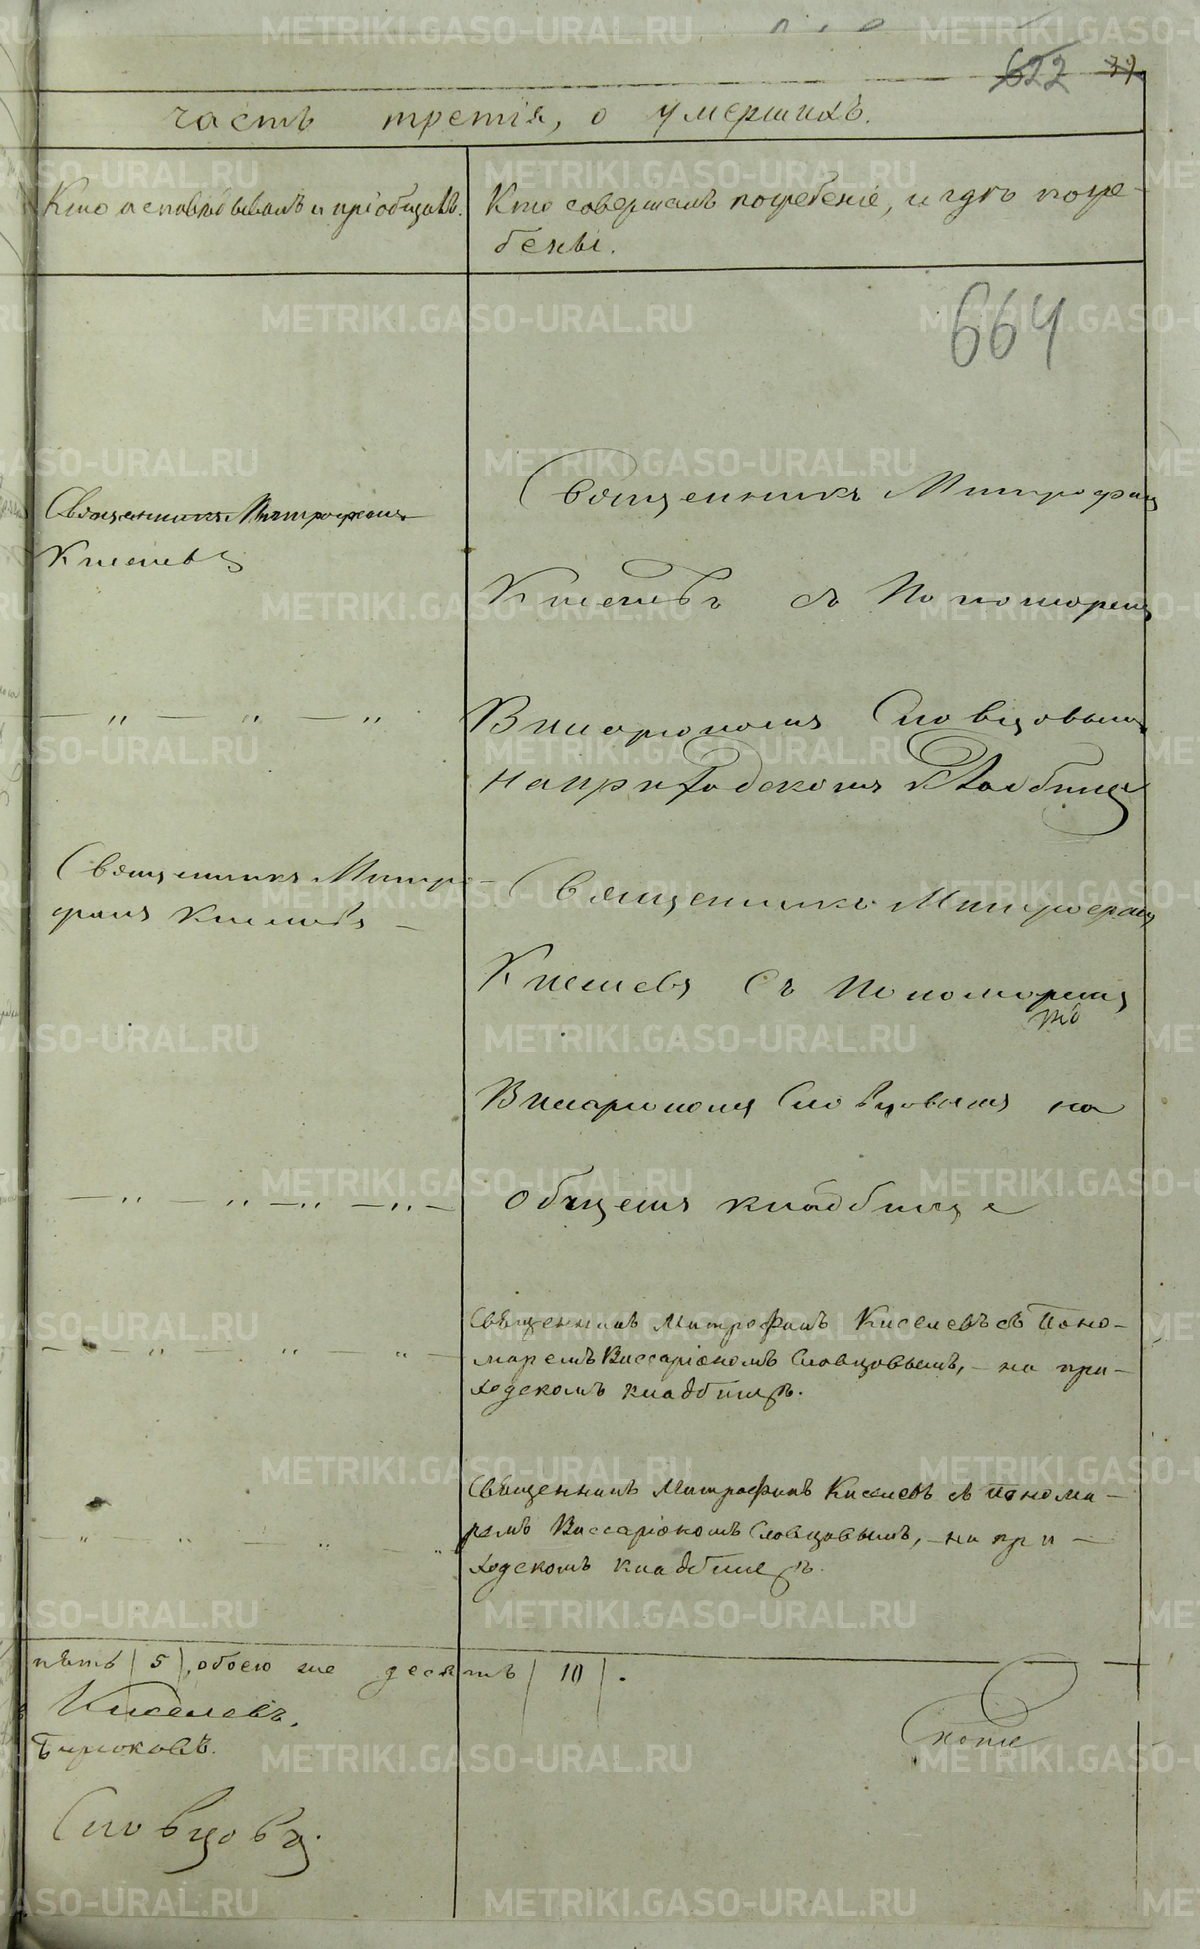 622
часть третія, о умершихъ.
Кто исповѣдывалъ и пріобщалъ.
Кто совершалъ погребеніе, и гдѣ погре-
бены.
664
Священникъ Митрофанъ
Киселевъ
Священникъ Митрофанъ
Киселевъ съ Пономаремъ
— " — " — "
Виссаріономъ Словцовымъ
на приходскомъ кладбищѣ
Священникъ Митро-
фанъ Киселевъ —
Священникъ Митрофанъ
Киселевъ съ Пономаремъ
Виссаріономъ Словцовымъ на
— " — " — " — " —
общемъ кладбище
Священникъ Митрофанъ Киселевъ съ Поно-
маремъ Виссаріономъ Словцовымъ, – на при-
ходскомъ кладбищѣ.
Священникъ Митрофанъ Киселевъ съ Понома-
ремъ Виссаріономъ Словцовымъ, – на при-
ходскомъ кладбищѣ.
пять /5/, обоего же десять /10/.
Киселевъ.
Бирюковъ.
Словцовъ.
METRIKI.GASO-URAL.RU